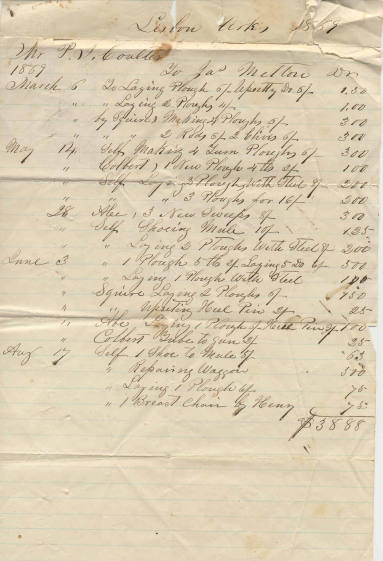 Lisbon Arks 1869
Mr P. J. Coulter
1869 To Jas Melton Dr
March 6 To Laying Plough 5/ 6/ 1.50
" " Laying 2 Ploughs 4/ 1.00
" by Squire Making 4 Ploughs 6/ 300
" " " 2 Rods 6/ 2 Clivis 6/ 300
May 14 Self Making 4 Turn Ploughs 6/ 300
" Colbert, 1 New Plough 4 lbs 2/ 100
" Self Laying 2 Plough With Steel 8/ 200
" " " 3 Ploughs for 16/ 200
" 28 Alec, 3 New Sweeps 8/ 300
" Self Shoeing Mule 10/ 125
" " Laying 2 Ploughs With Steel 8/ 200
June 3 " 1 Plough 5 lb 2/ Laying 5 Do 6/ 500
" " Laying 1 Plough With Steel 100
" Squire Laying 2 Ploughs 6/ 150
" " Heel Pin 2/ 25
" Abe, Laying 1 Plough 6/ Heel Pin 2/ 100
" Colbert to gun 2/ 25
Aug 17 Self 1 Shoe to Mule 5/ 63
" Repairing Waggon 300
" Laying 1 Plough 6/ 75
" 1 Breast Chain by Henry 75
$38 88